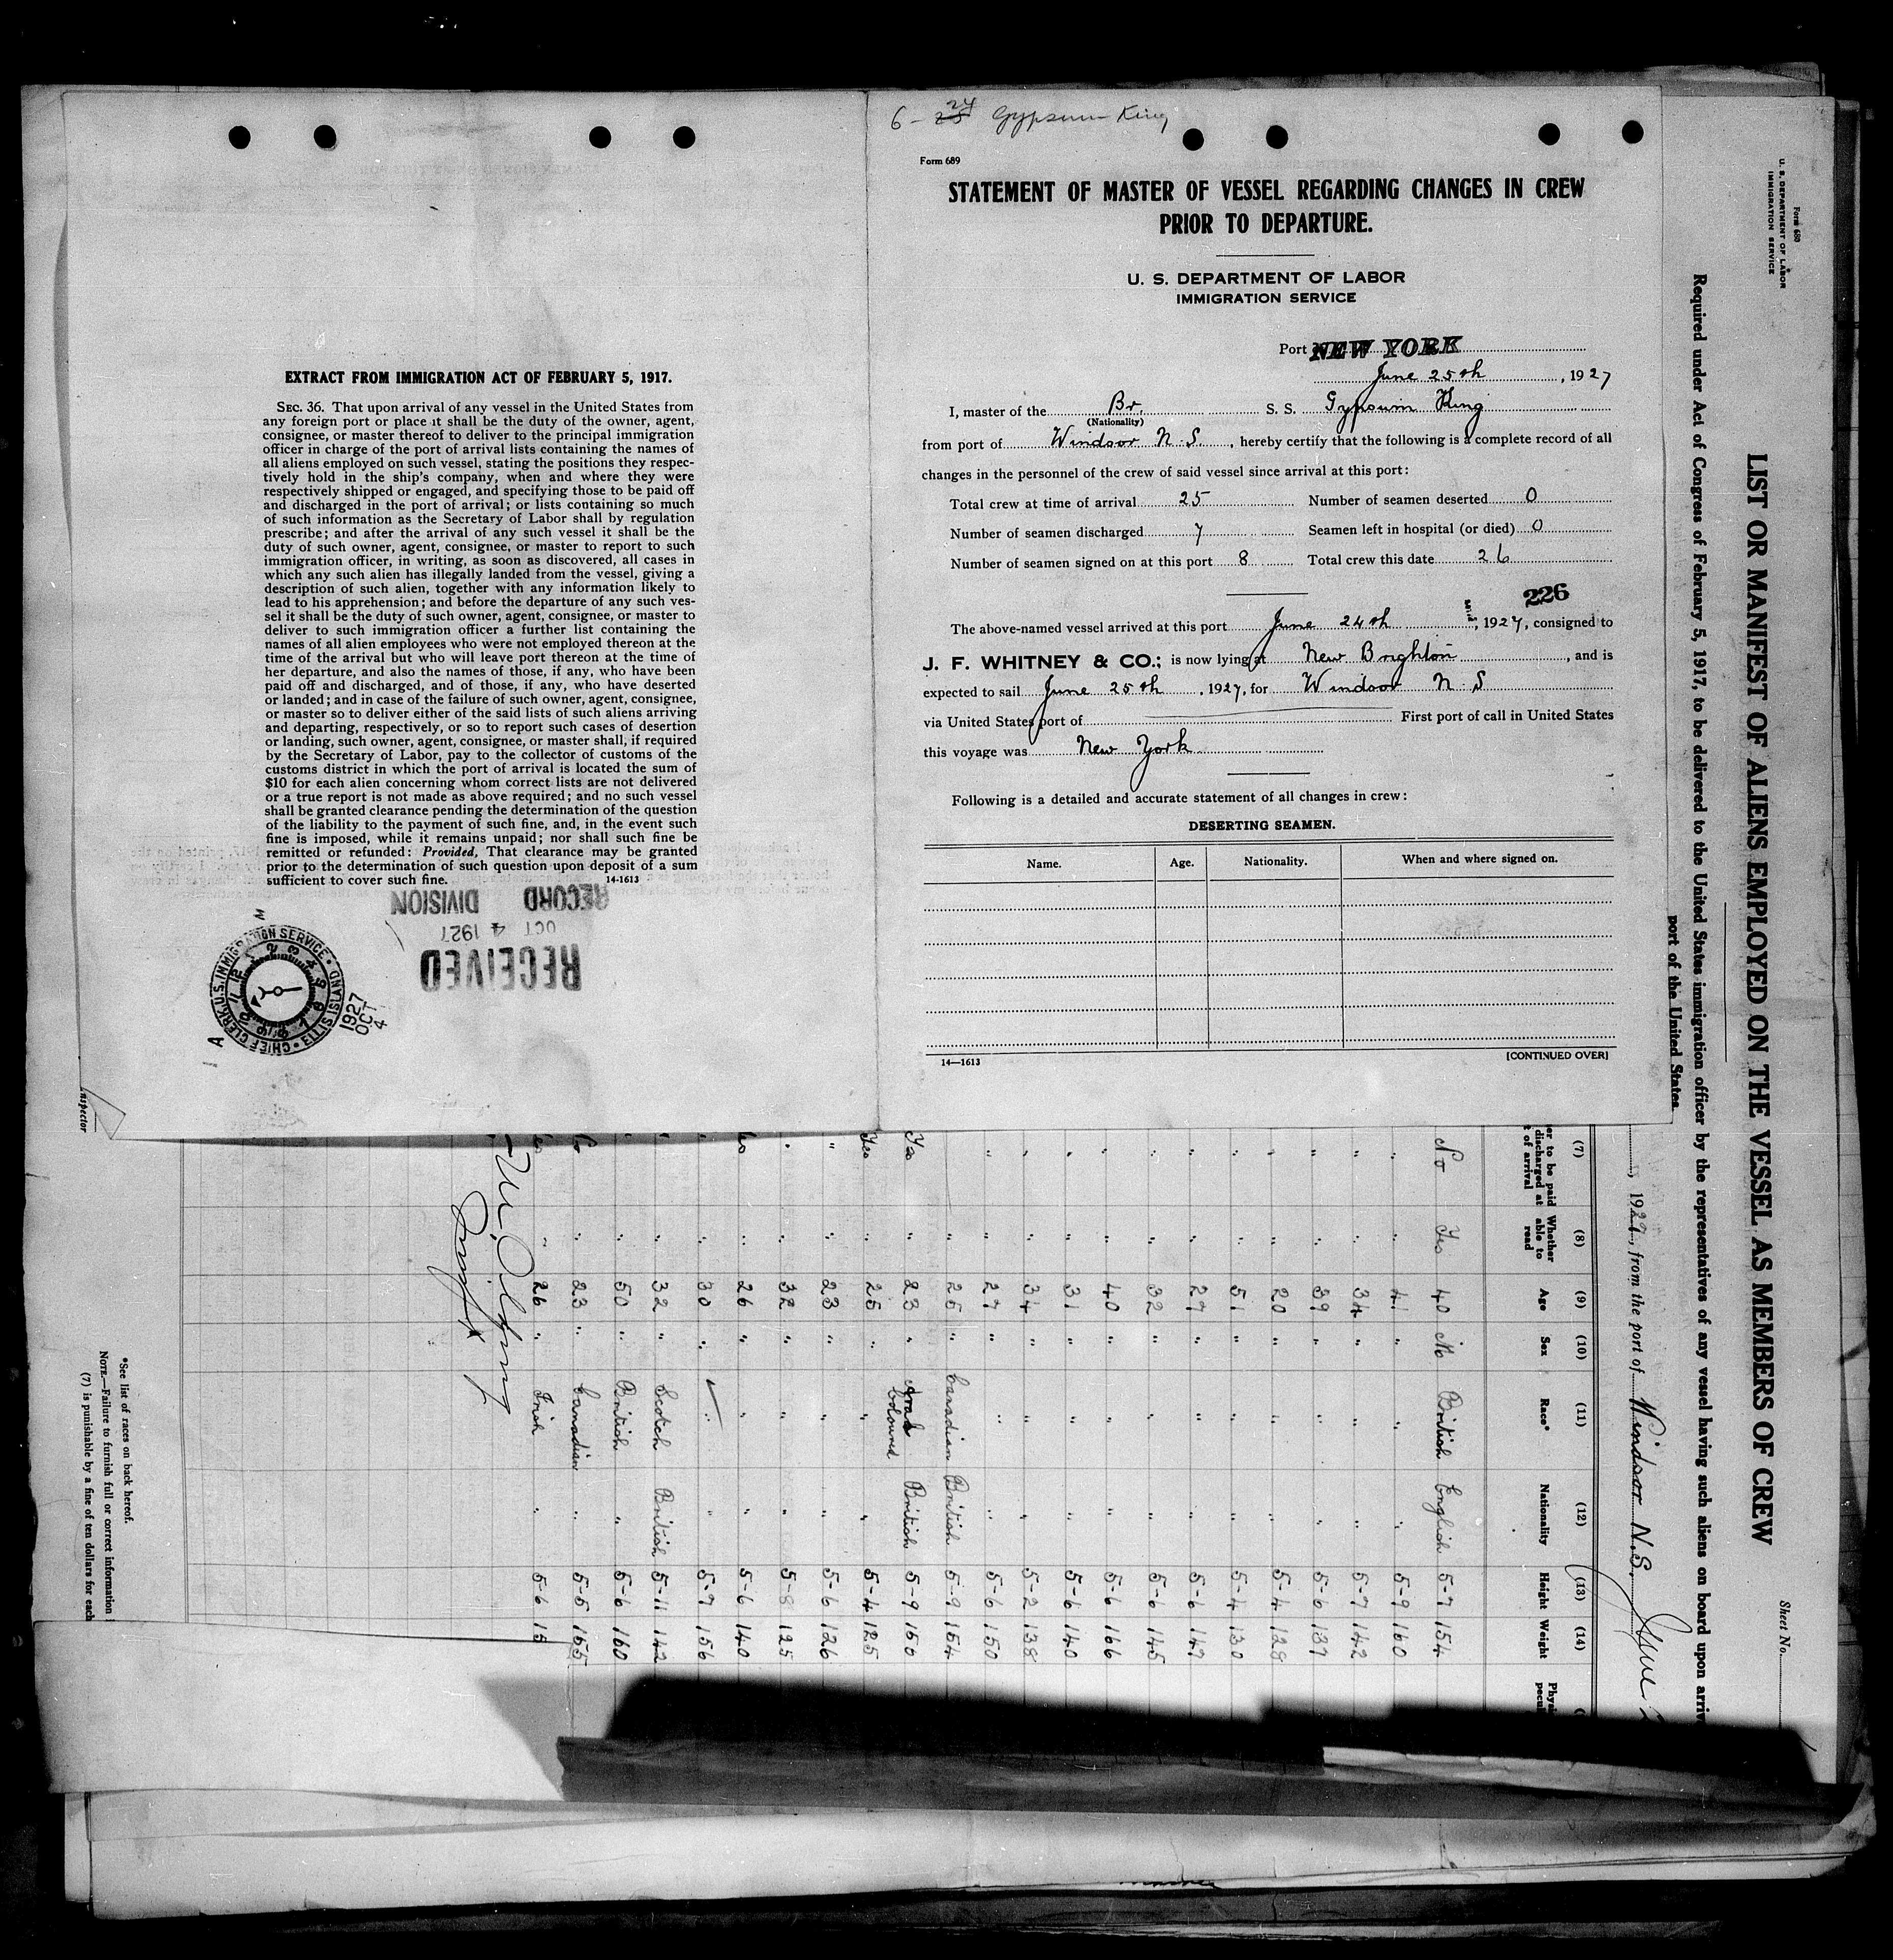 6-24 Gypsum King
Form 689
STATEMENT OF MASTER OF VESSEL REGARDING CHANGES IN CREW
PRIOR TO DEPARTURE.
U. S. DEPARTMENT OF LABOR
IMMIGRATION SERVICE
Port NEW YORK
June 25th, 1927
I, master of the Br. S. S. Gypsum King
(Nationality)
from port of Windsor N.S., hereby certify that the following is a complete record of all
changes in the personnel of the crew of said vessel since arrival at this port:
Total crew at time of arrival 25 Number of seamen deserted 0
Number of seamen discharged 7 Seamen left in hospital (or died) 0
Number of seamen signed on at this port 8 Total crew this date 26
226
The above-named vessel arrived at this port June 24th, 1927, consigned to
J. F. WHITNEY & CO.; is now lying at New Brighton, and is
expected to sail June 25th, 1927, for Windsor N S
via United States port of First port of call in United States
this voyage was New York
Following is a detailed and accurate statement of all changes in crew:
DESERTING SEAMEN.
Name. Age. Nationality. When and where signed on.
14—1613 [CONTINUED OVER]
EXTRACT FROM IMMIGRATION ACT OF FEBRUARY 5, 1917.
SEC. 36. That upon arrival of any vessel in the United States from
any foreign port or place it shall be the duty of the owner, agent,
consignee, or master thereof to deliver to the principal immigration
officer in charge of the port of arrival lists containing the names of
all aliens employed on such vessel, stating the positions they respec-
tively hold in the ship's company, when and where they were
respectively shipped or engaged, and specifying those to be paid off
and discharged in the port of arrival; or lists containing so much
of such information as the Secretary of Labor shall by regulation
prescribe; and after the arrival of any such vessel it shall be the
duty of such owner, agent, consignee, or master to report to such
immigration officer, in writing, as soon as discovered, all cases in
which any such alien has illegally landed from the vessel, giving a
description of such alien, together with any information likely to
lead to his apprehension; and before the departure of any such ves-
sel it shall be the duty of such owner, agent, consignee, or master to
deliver to such immigration officer a further list containing the
names of all alien employees who were not employed thereon at the
time of the arrival but who will leave port thereon at the time of
her departure, and also the names of those, if any, who have been
paid off and discharged, and of those, if any, who have deserted
or landed; and in case of the failure of such owner, agent, consignee,
or master so to deliver either of the said lists of such aliens arriving
and departing, respectively, or so to report such cases of desertion
or landing, such owner, agent, consignee, or master shall, if required
by the Secretary of Labor, pay to the collector of customs of the
customs district in which the port of arrival is located the sum of
$10 for each alien concerning whom correct lists are not delivered
or a true report is not made as above required; and no such vessel
shall be granted clearance pending the determination of the question
of the liability to the payment of such fine, and, in the event such
fine is imposed, while it remains unpaid; nor shall such fine be
remitted or refunded: Provided, That clearance may be granted
prior to the determination of such question upon deposit of a sum
sufficient to cover such fine. 14-1613
RECEIVED
OCT 4 1927
RECORD DIVISION
CHIEF CLERK U.S. IMMIGRATION SERVICE • ELLIS ISLAND
1927
OCT
4
Inspector
Form 680
U. S. DEPARTMENT OF LABOR
IMMIGRATION SERVICE
Sheet No.
LIST OR MANIFEST OF ALIENS EMPLOYED ON THE VESSEL AS MEMBERS OF CREW
Required under Act of Congress of February 5, 1917, to be delivered to the United States immigration officer by the representatives of any vessel having such aliens on board upon
port of the United States
, 1927, from the port of Windsor N.S. June
(7) (8) (9) (10) (11) (12) (13) (14)
er to be paid discharged at of arrival Whether able to read Age Sex Race* Nationality Height Weight
No Yes 40 M British English 5-7 154
" " 41 " " " 5-9 160
" " 34 " " " 5-7 142
" " 39 " " " 5-6 137
" " 20 " " " 5-4 128
" " 51 " " " 5-4 130
" " 27 " " " 5-6 147
" " 32 " " " 5-6 145
" " 40 " " " 5-6 166
" " 31 " " " 5-6 140
" " 34 " " " 5-2 138
" " 27 " " " 5-6 150
" 25 " Canadian British 5-9 154
Yes " 23 " Arab Coloured British 5-9 150
Yes " 25 " " " 5-4 125
" " 23 " " " 5-6 126
" " 32 " " " 5-8 125
" 26 " " " 5-6 140
" " 30 " " " 5-7 156
" " 32 " Scotch British 5-11 142
" " 50 " British " 5-6 160
" 23 " Canadian " 5-5 155
" 26 " Irish " 5-6 15
*See list of races on back hereof.
NOTE.—Failure to furnish full or correct information
(7) is punishable by a fine of ten dollars for each